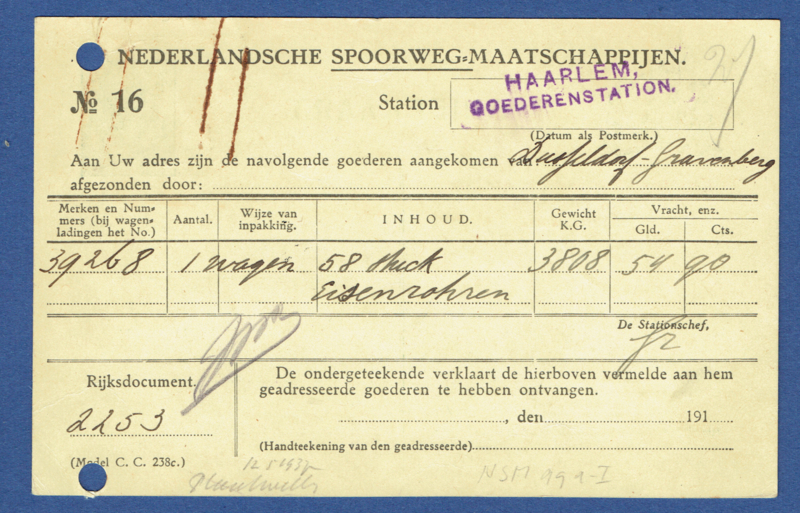 NEDERLANDSCHE SPOORWEG=MAATSCHAPPIJEN.
No 16 Station HAARLEM,
GOEDERENSTATION.
(Datum als Postmerk.)
Aan Uw adres zijn de navolgende goederen aangekomen van Dusseldorf-Gravenberg
afgezonden door:
Merken en Num=
mers (bij wagen=
ladingen het No.)
Aantal.
Wijze van
inpakking.
INHOUD.
Gewicht
K.G.
Vracht, enz.
Gld. Cts.
39268 1 wagen 58 Stuck 3808 54 90
Eisenrohren
De Stationschef,
Rijksdocument.
2253
De ondergeteekende verklaart de hierboven vermelde aan hem
geadresseerde goederen te hebben ontvangen.
, den 191
(Handteekening van den geadresseerde)
(Model C. C. 238c.)
NSM